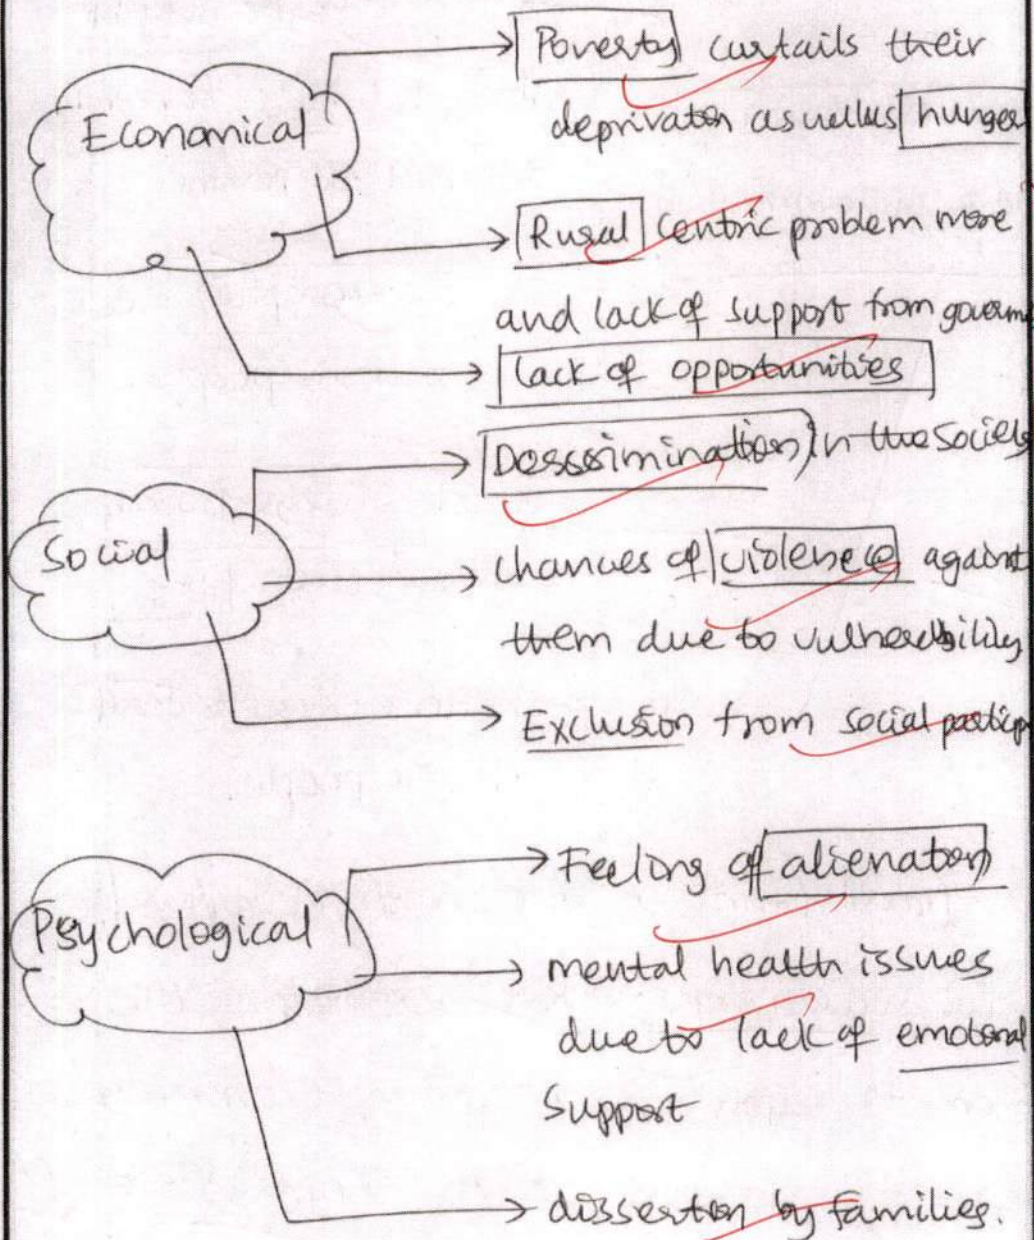 Economical
Poverty curtails their
deprivaton as wellas hunger
Rural Centric problem more
and lack of support from governm
lack of opportunities
Social
Desscrimination in the Society
chances of violenece against
them due to vulnerability
Exclusion from social particip
Psychological
Feeling of alienaton
mental health issues
due to lack of emotonal
Support
disserton by families.